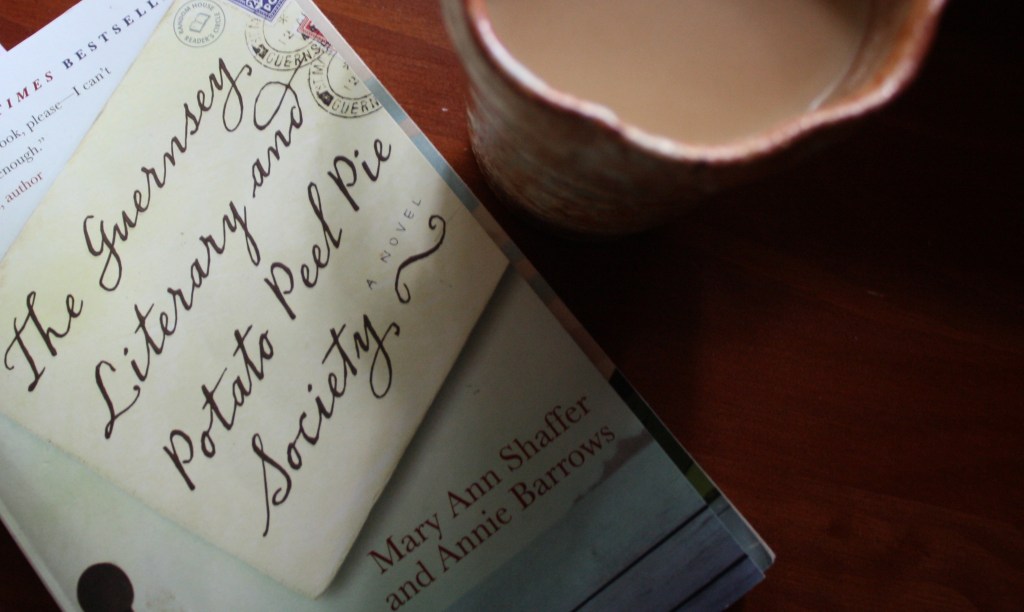 TIMES BESTSELL
ook, please—I can't
enough."
, author
RANDOM HOUSE
READER'S CIRCLE
GUERNS
GUERN
The Guernsey
Literary and
Potato Peel Pie
Society
A NOVEL
Mary Ann Shaffer
and Annie Barrows